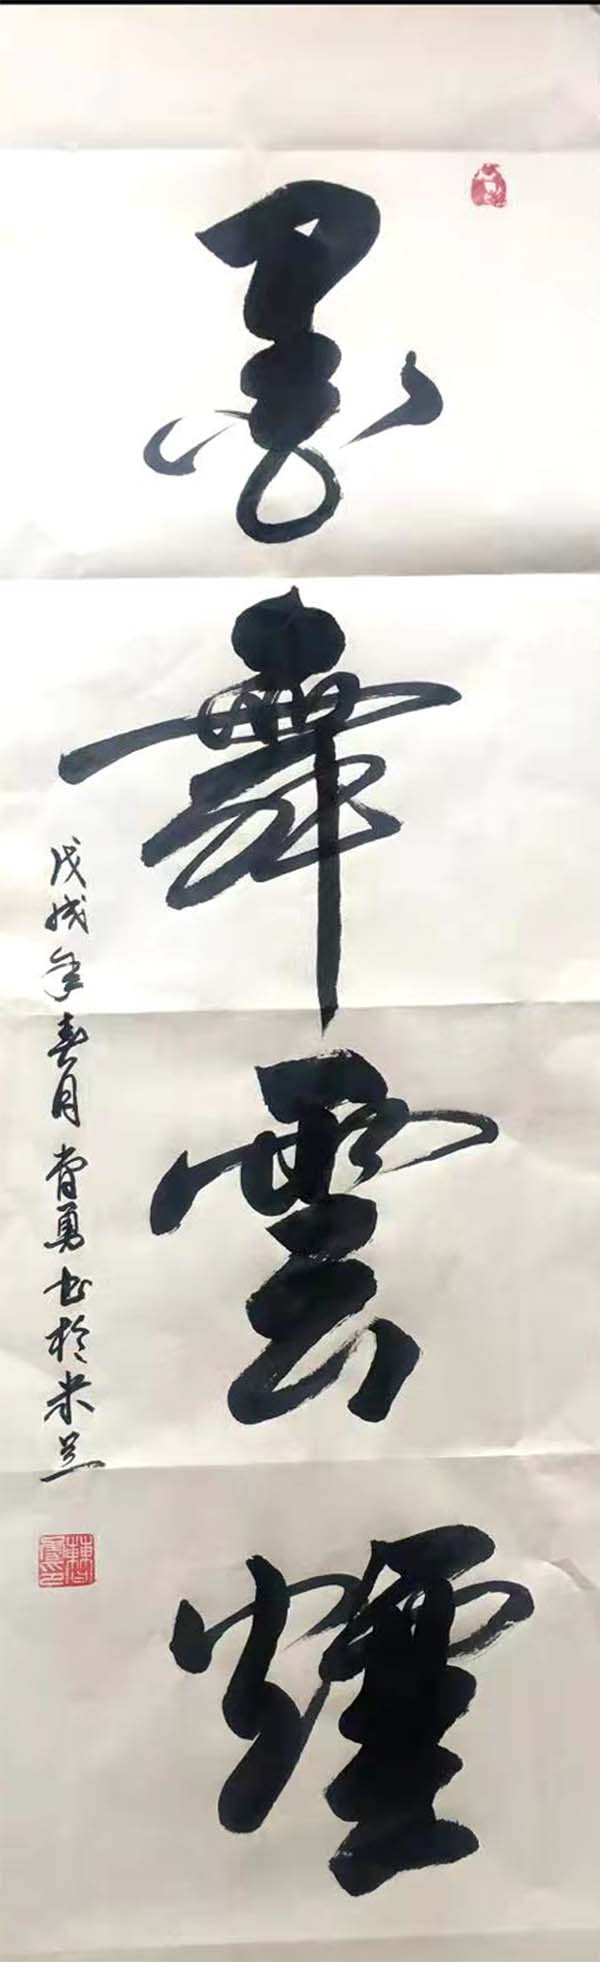 墨舞雲煙
戊戌年春月曹勇书於米兰